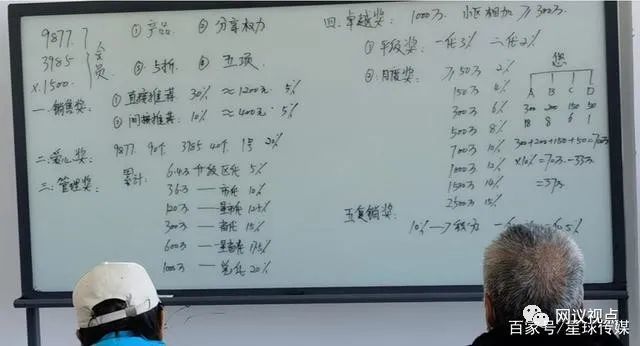 9877.7
3985
x.1500
会员
① 产品 ② 分享权力
③ 5折 ④ 五项
一.销售奖: ① 直接推荐 30% ≈1200元·5%
② 间接推荐: 10% ≈400元·5%
二.爱心奖: 9877. 90个 3985 40个 1号 20%
三.管理奖: 累计:
5%
36万 — 市代 10%
120万 — 12.5%
300万 — 省代 15%
600万 — 17.5%
1000万 — 总代 20%
四.卓越奖: 1000万 小区相加 ≥300万
① 年级奖: 一代3% 二代2%
② 月度奖: ≥50万 2%
150万 4%
300万 6%
500万 8%
700万 10%
1000万 12%
1500万 14%
2500万 15%
您
A B C D
300 200 150 50
18 8 6 1
300+200+150+50=700万
x10%=70万-33万
=37万
五.复销奖:
10% → 积分
网议视点
百家号/星球传媒